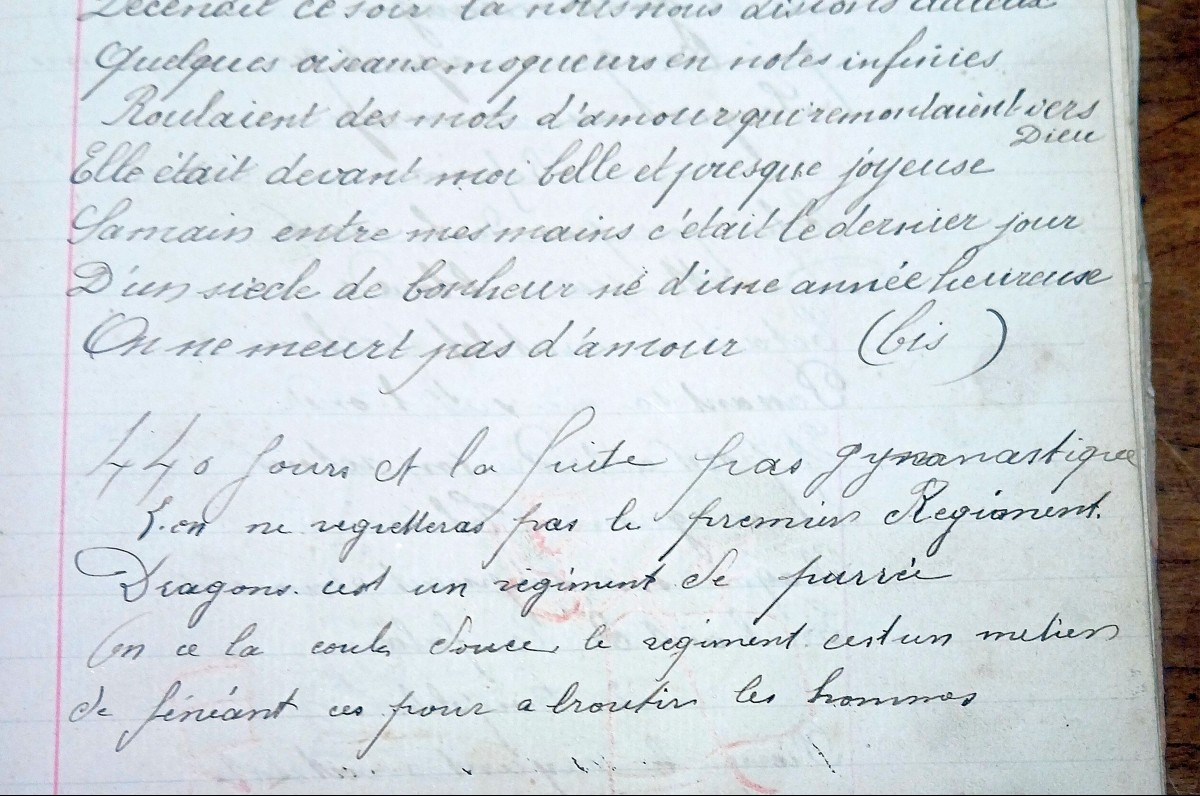 Décendait ce soir là nous nous disions adieux
Quelques oiseaux moqueurs en notes infinies
Roulaient des mots d'amour qui remontaient vers
Dieu
Elle était devant moi belle et presque joyeuse
Sa main entre mes mains c'était le dernier jour
D'un siècle de bonheur né d'une année heureuse
On ne meurt pas d'amour (bis)
440 Jours et la fuite pas gymanastique
L'on ne regretteras pas le premier Regiment.
Dragons. cest un régiment de purrée
On ce la coule douce, le regiment cest un metier
de fénéant ces pour abroutir les hommes